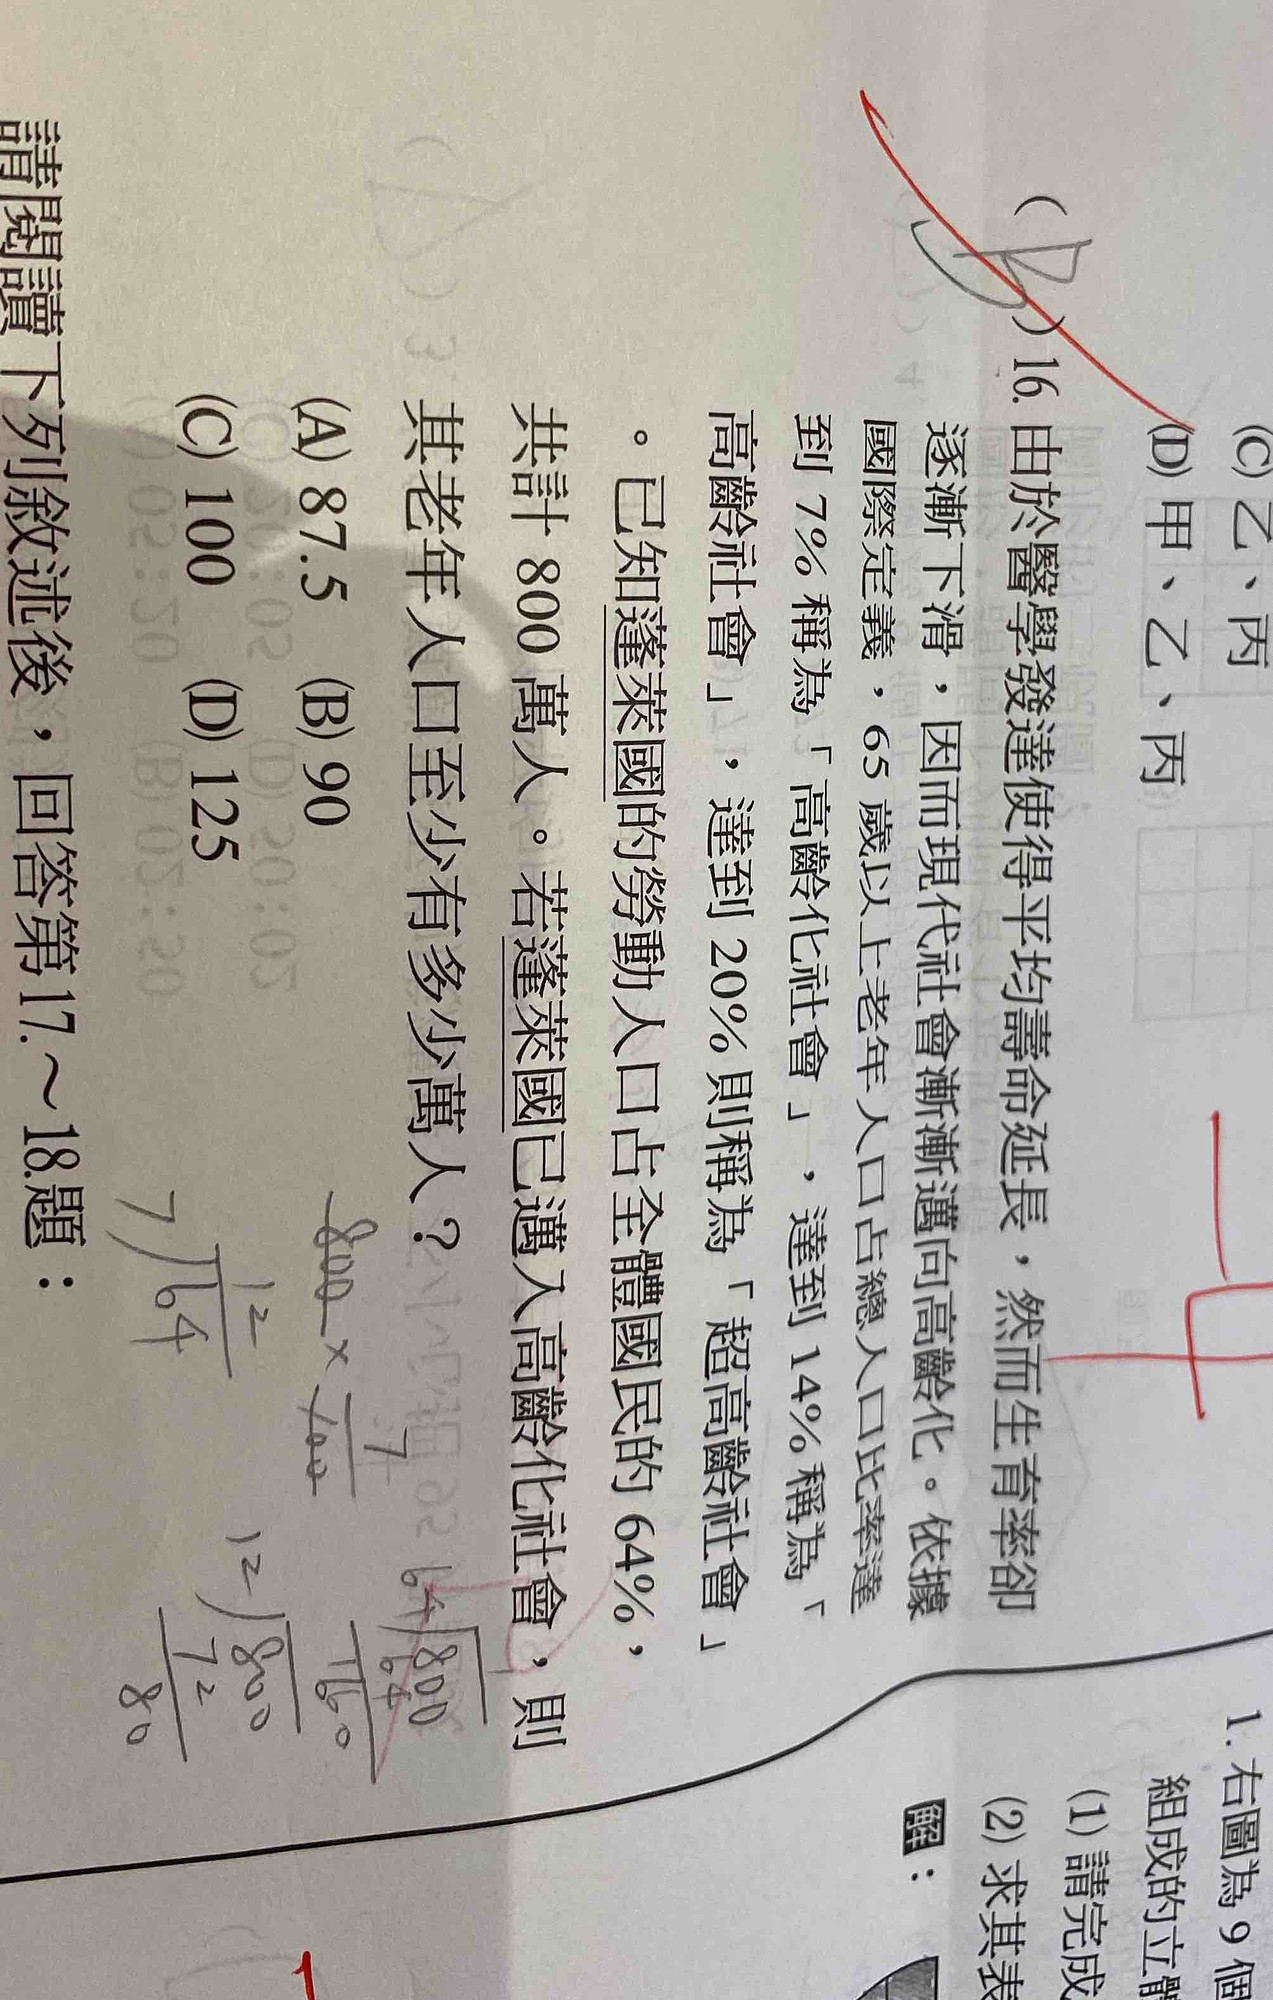 (C) 乙、丙
(D) 甲、乙、丙
(B) 16. 由於醫學發達使得平均壽命延長，然而生育率卻
逐漸下滑，因而現代社會漸漸邁向高齡化。依據
國際定義，65 歲以上老年人口占總人口比率達
到 7% 稱為「高齡化社會」，達到 14% 稱為「
高齡社會」，達到 20% 則稱為「超高齡社會」
。已知蓬萊國的勞動人口占全體國民的 64%，
共計 800 萬人。若蓬萊國已邁入高齡化社會，則
其老年人口至少有多少萬人？
(A) 87.5 (B) 90
(C) 100 (D) 125
800 × 7/100
64)800
64
160
12
7)64
12)800
72
80
請閱讀下列敘述後，回答第17.～18.題：
1. 右圖為 9 個
組成的立體
(1) 請完成
(2) 求其表
解：